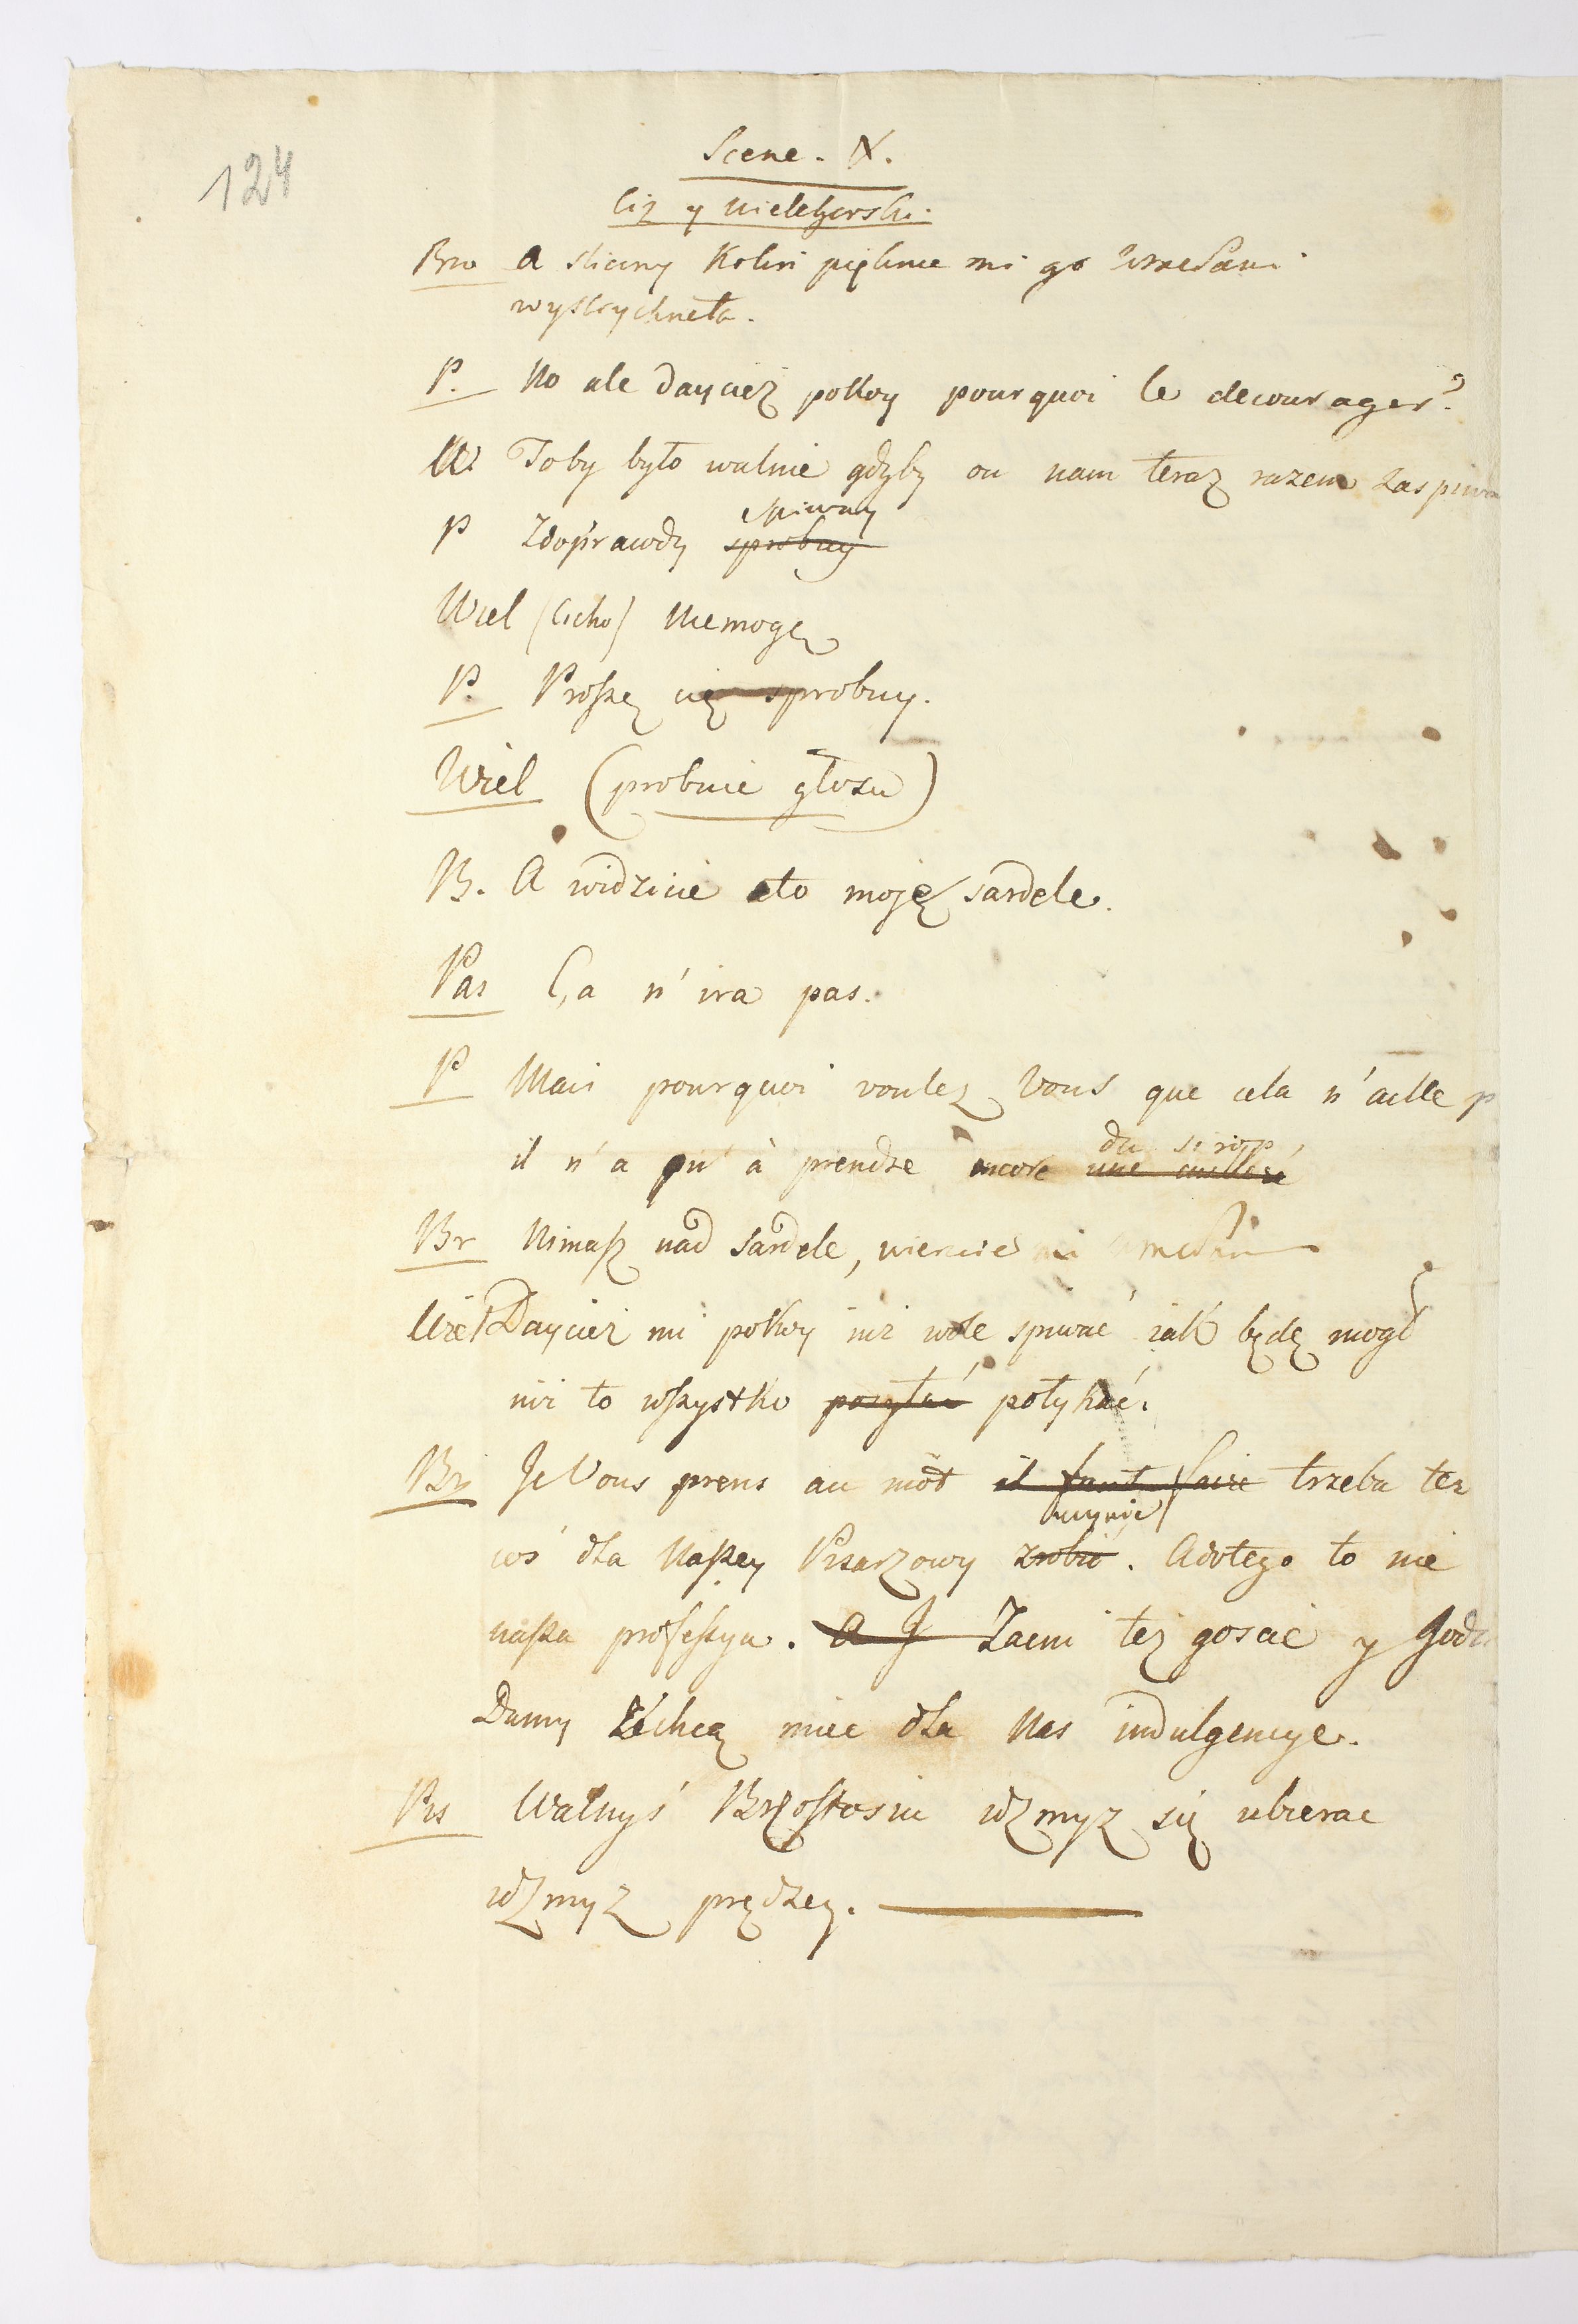 124
Scene. X.
Ciż y Wielehorski.
Brw A sliczny Koliri pięknie mi go
wystrychneła.
P. No ale dayciez pokoy pourquoi le decourager?
W. Toby było walnie gdyby on nam teraz razem zaspiewa
spiwny
P Zdoprawdy sprobuy
Wiel (cicho) Niemogę
P. Proszę cię sprobuy.
Wiel (probuie głosu)
B. A widzicie oto moję sardele.
Pas Ça n'ira pas.
P Mais pourquoi voulez Vous que cela n'aille p
du sirop
il n'a qu'à prendre encore une cuilleré
Br Nimasz nad sardele, wierzcie mi
Wiel Dayciez mi pokoy niz wole spiwać iak będę mogł
niz to wszystko połykać.
Br Je Vous prens au môt il faut faire trzeba tez
uczynić
coś dla Naszey Pisarzowy zrobić. Adotego to nie
nasza professya. A J Zacni tez goscie y Godn
Damy zechcą miec dla Nas indulgencye.
Pis Walnyś Brzostosiu idzmyz się ubierac
idzmyz prędzey.